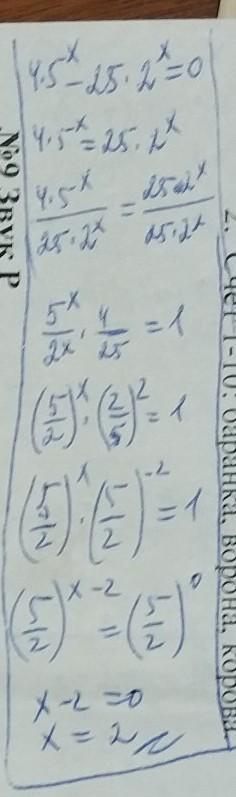 4·5^x − 25·2^x = 0
4·5^x = 25·2^x
4·5^x / 25·2^x = 25·2^x / 25·2^x
5^x / 2^x · 4 / 25 = 1
(5/2)^x · (2/5)^2 = 1
(5/2)^x · (5/2)^−2 = 1
(5/2)^x−2 = (5/2)^0
x − 2 = 0
x = 2
№9 Звук Р
2. Счет 1-10: баранка, ворона, корова